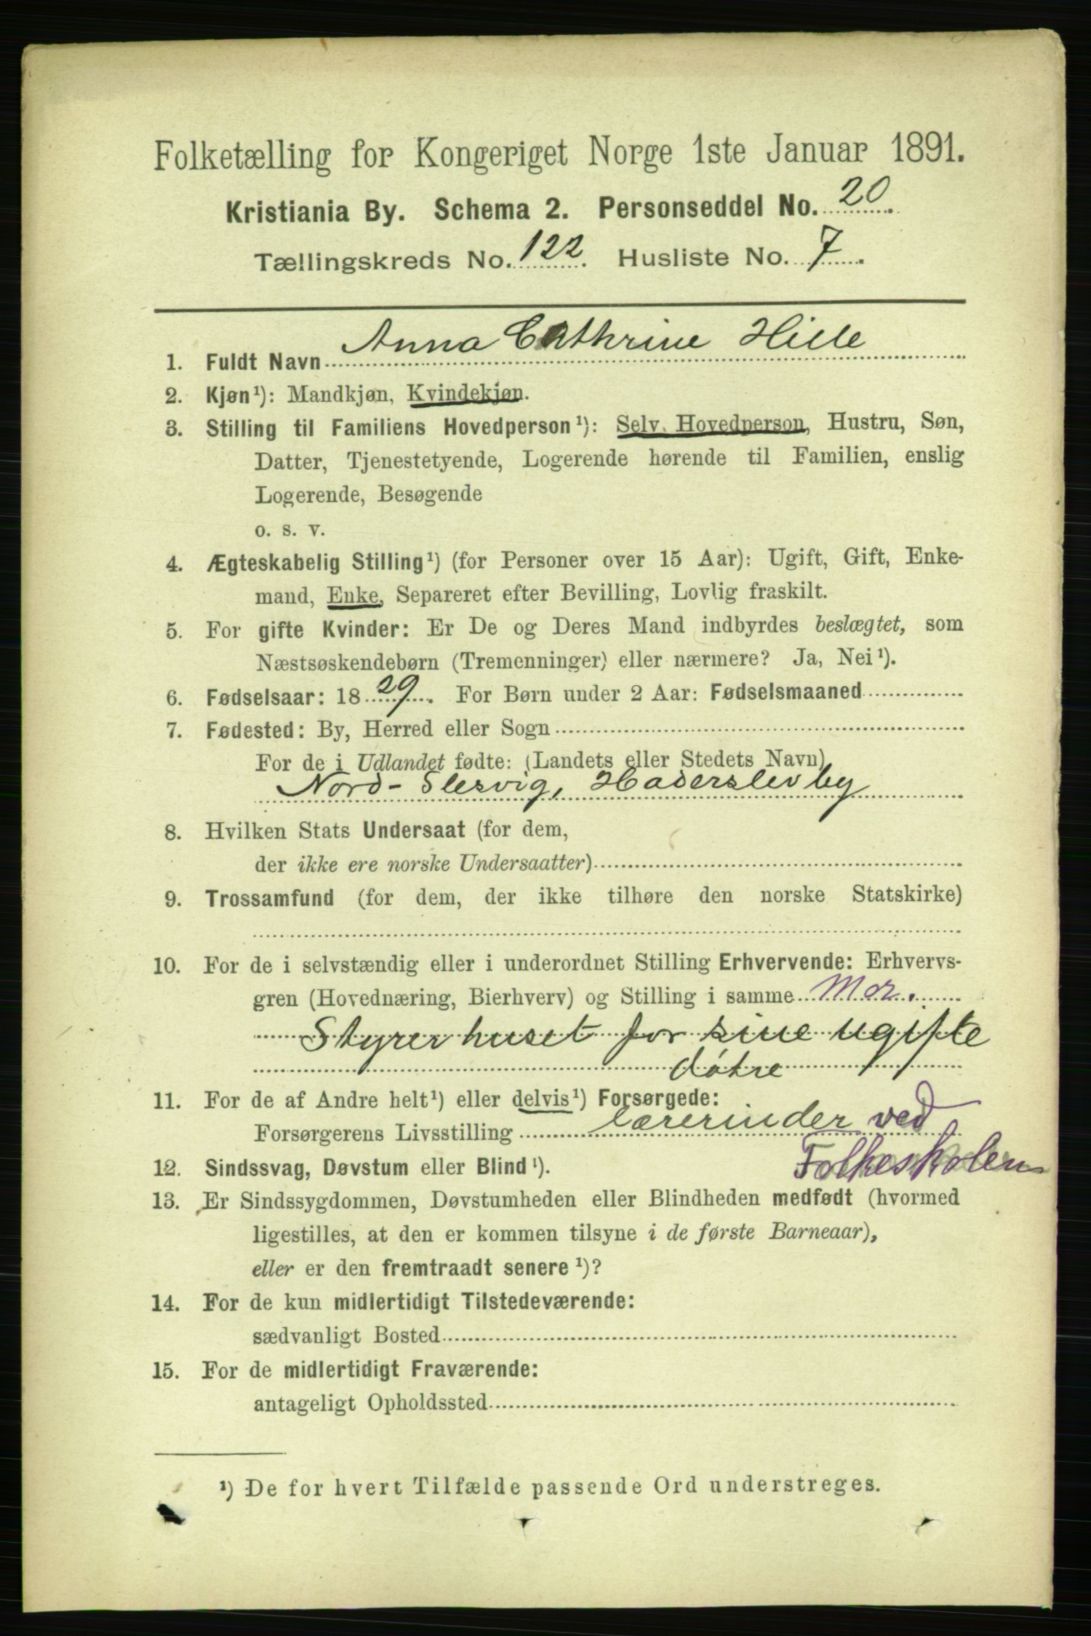 Folketælling for Kongeriget Norge 1ste Januar 1891.
Kristiania By. Schema 2. Personseddel No. 20.
Tællingskreds No. 122. Husliste No. 7.
1. Fuldt Navn Anna Cathrine Hille
2. Kjøn¹): Mandkjøn, Kvindekjøn.
3. Stilling til Familiens Hovedperson¹): Selv Hovedperson, Hustru, Søn,
Datter, Tjenestetyende, Logerende hørende til Familien, enslig
Logerende, Besøgende
o. s. v.
4. Ægteskabelig Stilling¹) (for Personer over 15 Aar): Ugift, Gift, Enke-
mand, Enke, Separeret efter Bevilling, Lovlig fraskilt.
5. For gifte Kvinder: Er De og Deres Mand indbyrdes beslægtet, som
Næstsøskendebørn (Tremenninger) eller nærmere? Ja, Nei¹).
6. Fødselsaar: 1829. For Børn under 2 Aar: Fødselsmaaned
7. Fødested: By, Herred eller Sogn
For de i Udlandet fødte: (Landets eller Stedets Navn)
Nord-Slesvig, Haderslev by
8. Hvilken Stats Undersaat (for dem,
der ikke ere norske Undersaatter)
9. Trossamfund (for dem, der ikke tilhøre den norske Statskirke)
10. For de i selvstændig eller i underordnet Stilling Erhvervende: Erhvervs-
gren (Hovednæring, Bierhverv) og Stilling i samme Mor.
Styrer huset for sine ugifte
døtre
11. For de af Andre helt¹) eller delvis¹) Forsørgede:
Forsørgerens Livsstilling lærerinder ved
Folkeskolen
12. Sindssvag, Døvstum eller Blind¹).
13. Er Sindssygdommen, Døvstumheden eller Blindheden medfødt (hvormed
ligestilles, at den er kommen tilsyne i de første Barneaar),
eller er den fremtraadt senere¹)?
14. For de kun midlertidigt Tilstedeværende:
sædvanligt Bosted
15. For de midlertidigt Fraværende:
antageligt Opholdssted
¹) De for hvert Tilfælde passende Ord understreges.